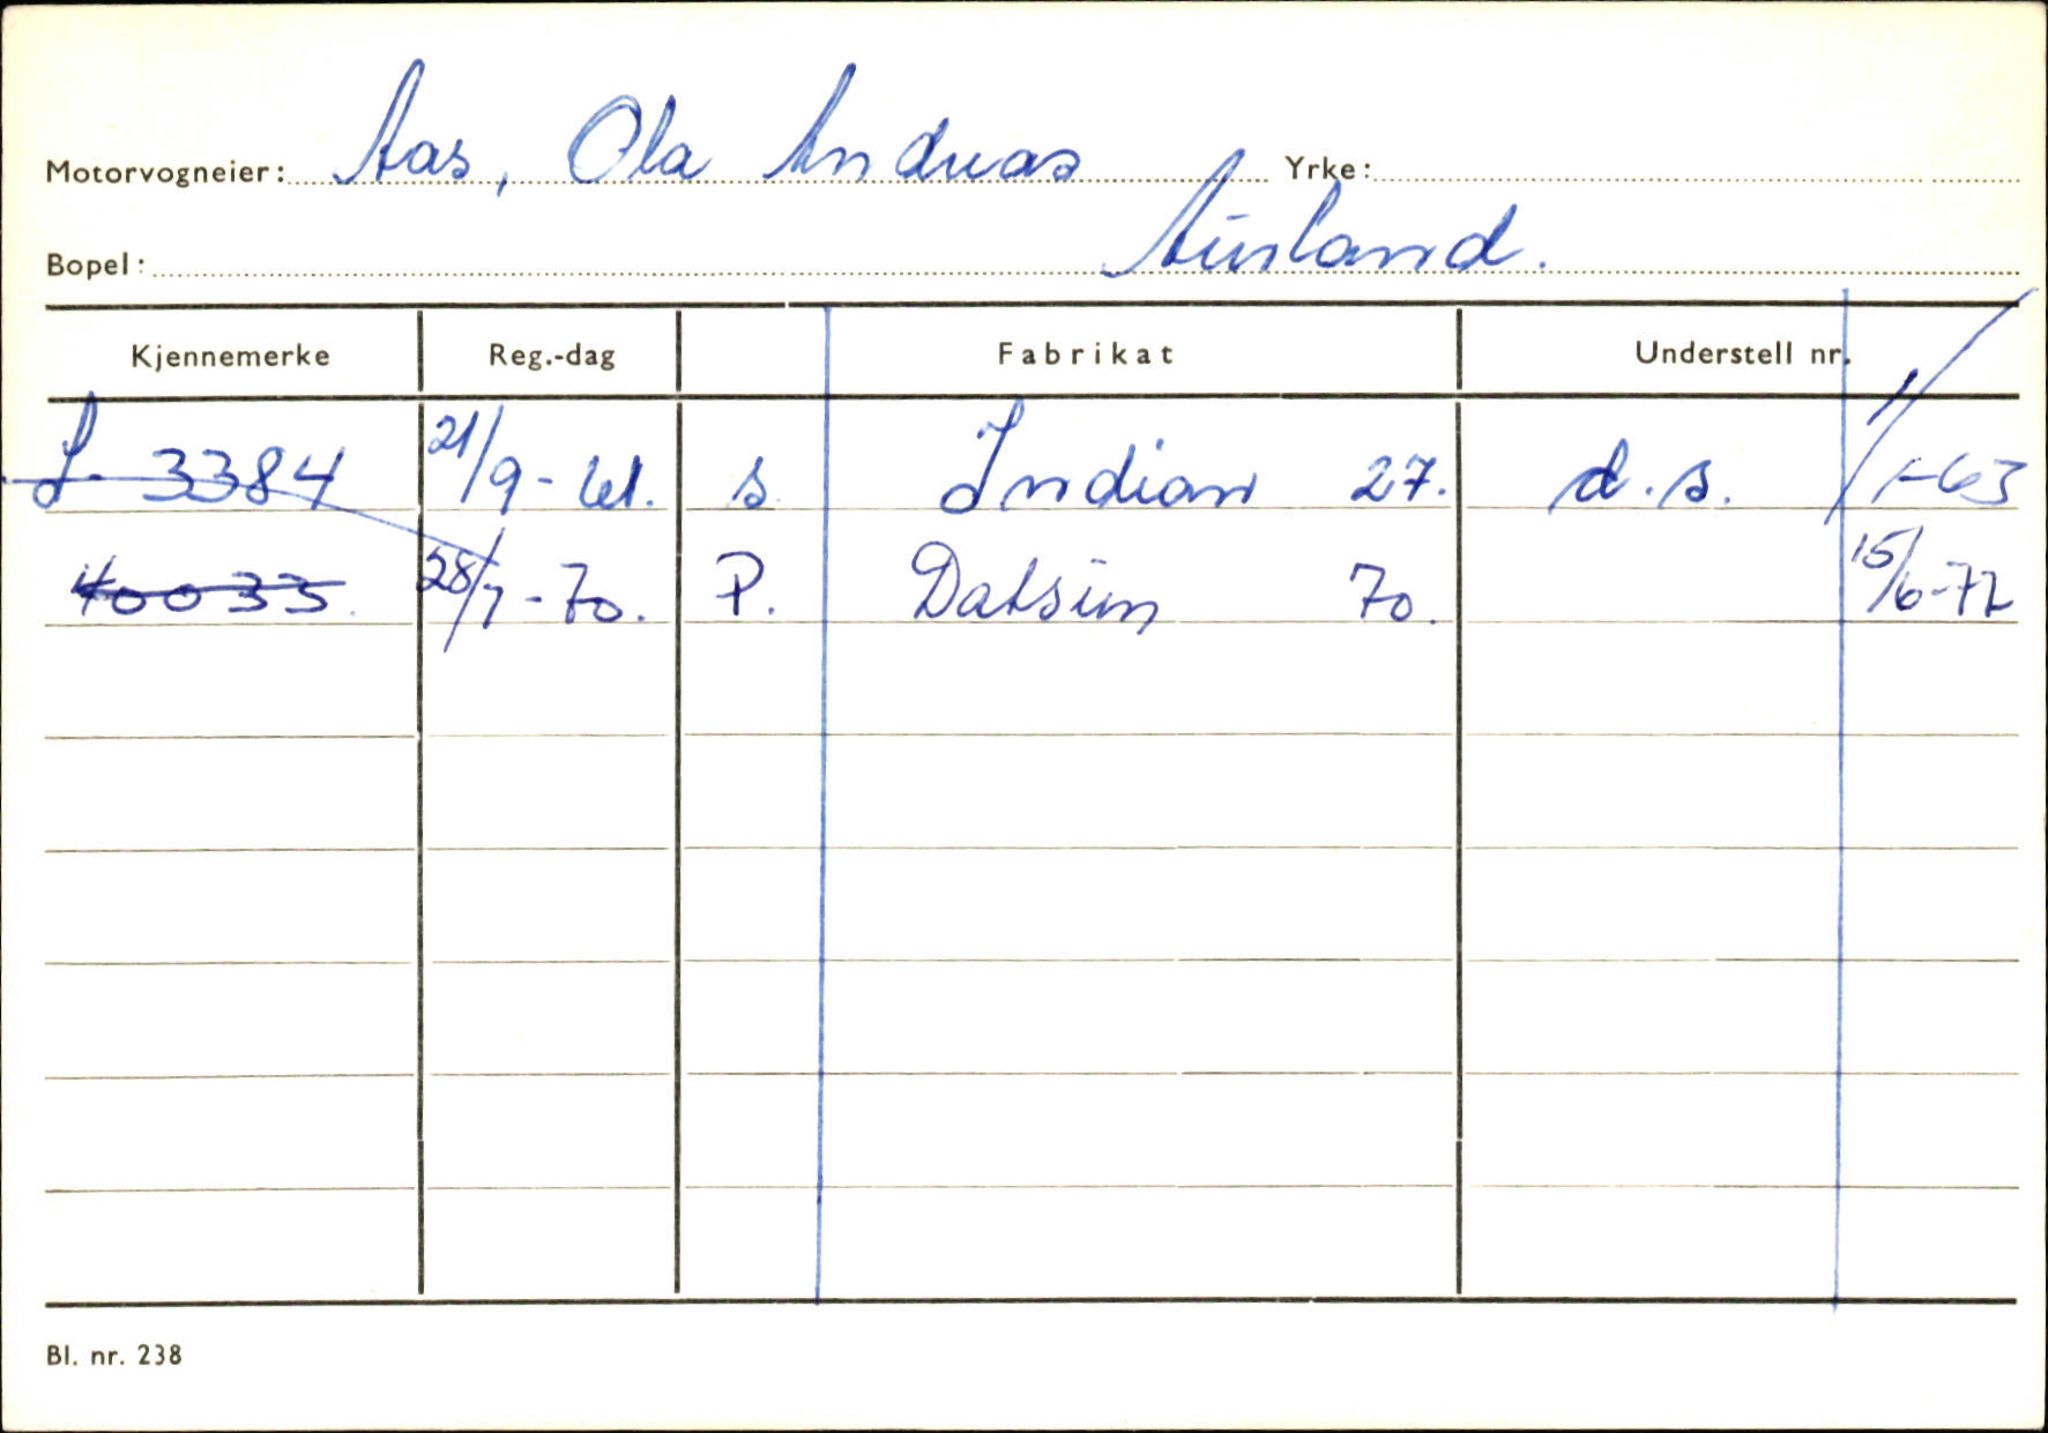 Motorvogneier: Aas, Ola Andreas Yrke:
Bopel: Aurland.
Kjennemerke Reg.-dag Fabrikat Understell nr.
S- 3384 21/9-61. s Indian 27. d.s. 1/1-63
40033. 28/7-70. P. Datsun 70. 15/6-72
Bl. nr. 238